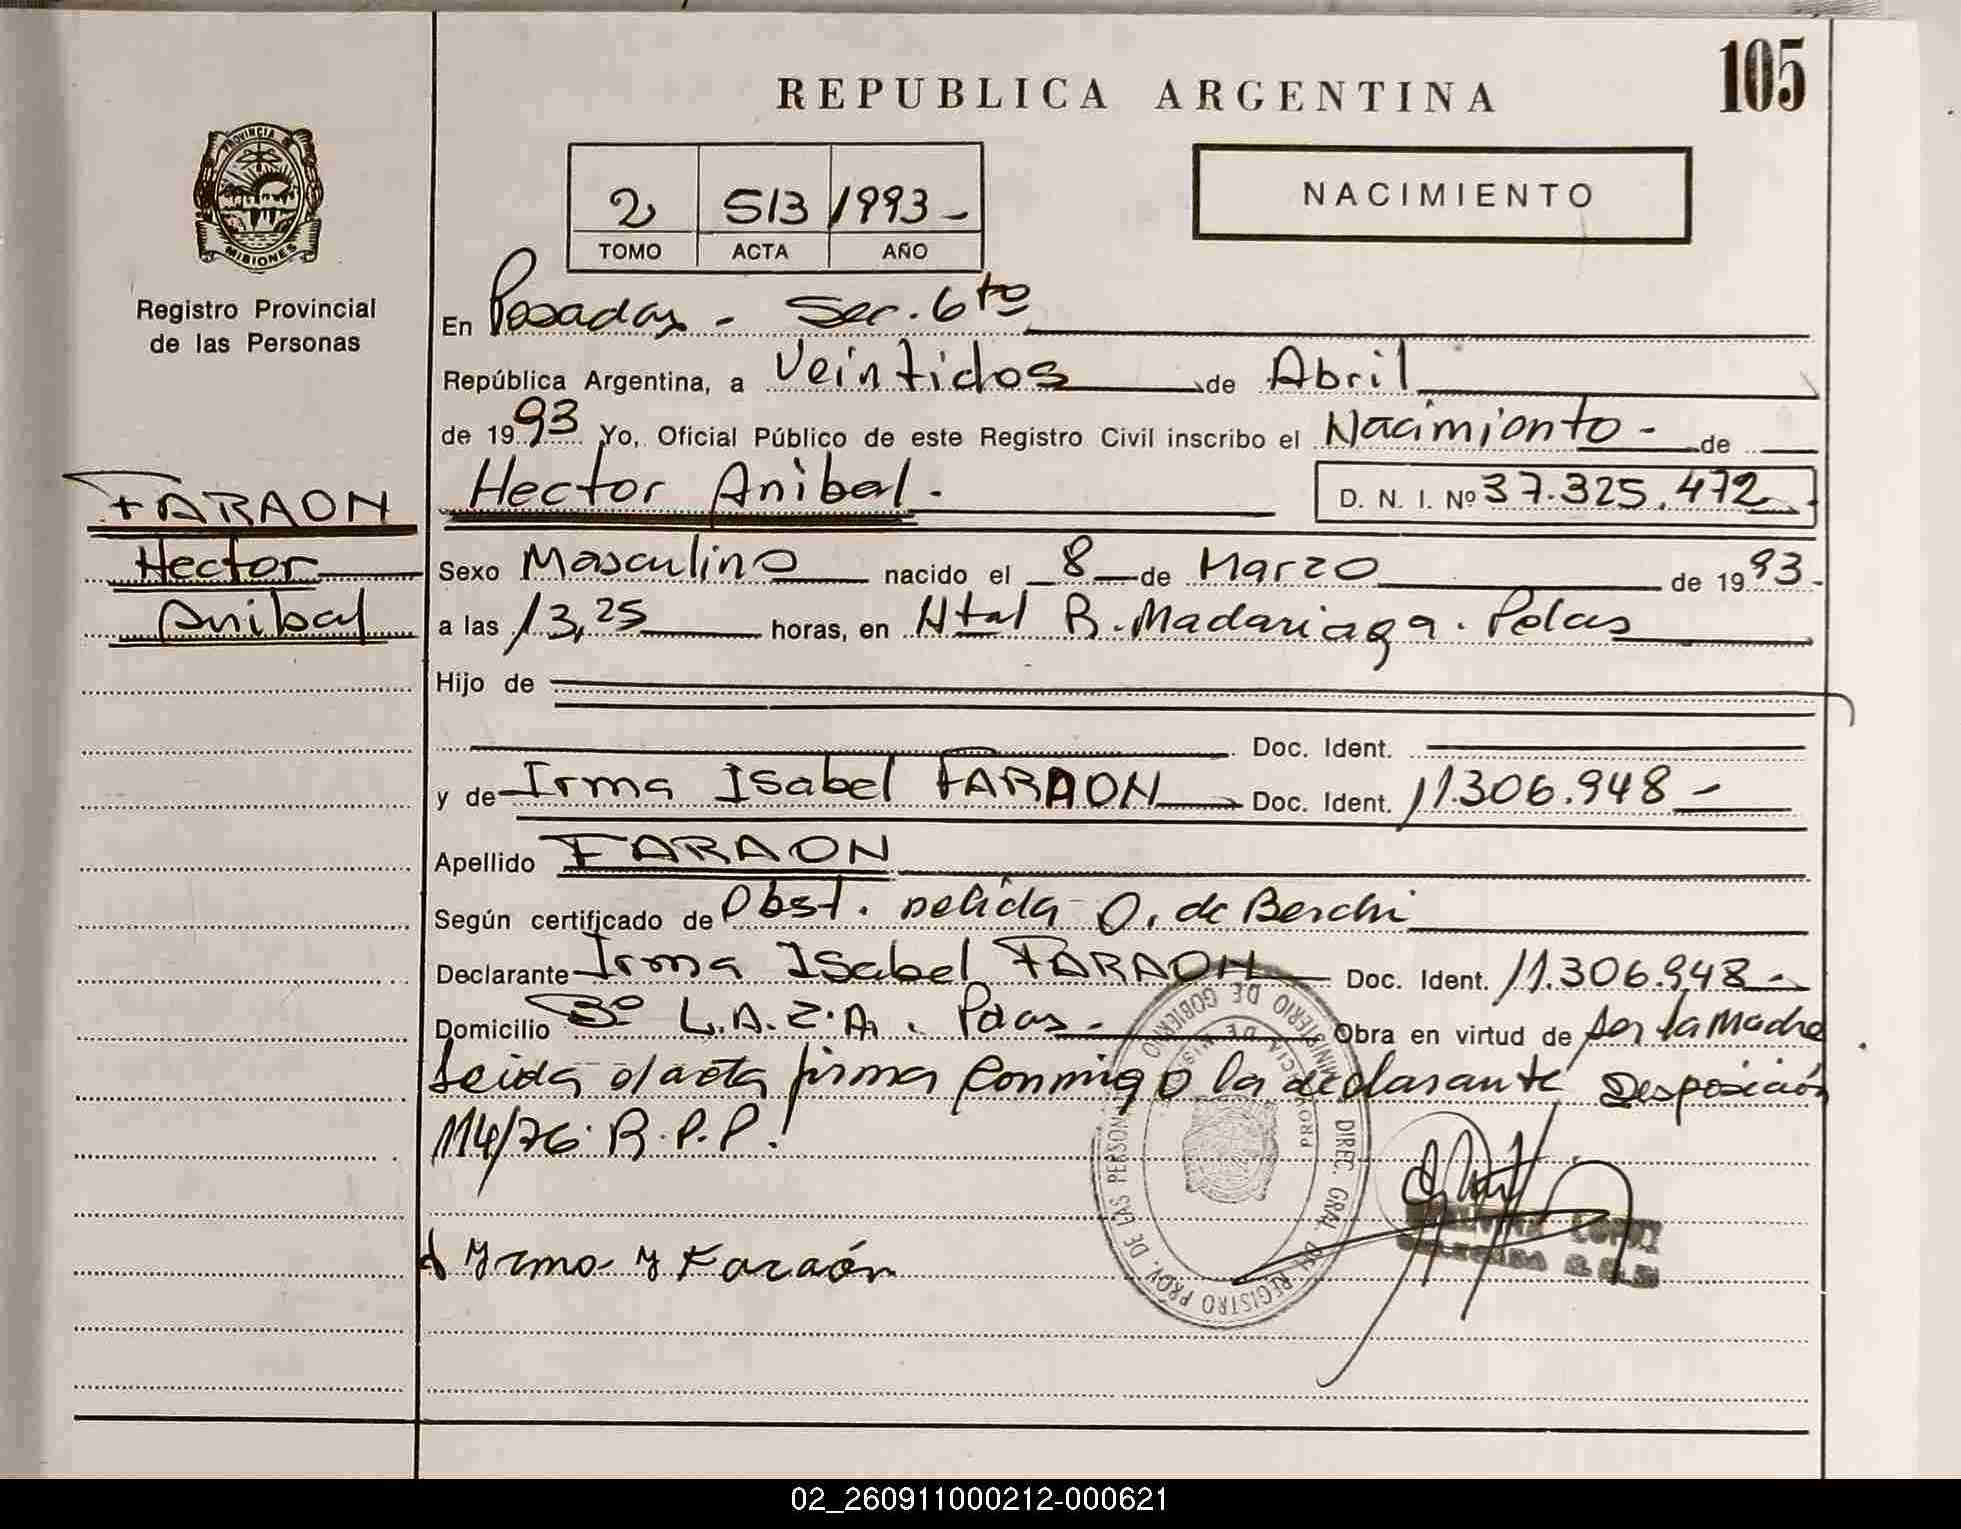 105
REPUBLICA ARGENTINA
NACIMIENTO
2 513 1993 -
TOMO ACTA AÑO
PROVINCIA
MISIONES
Registro Provincial
de las Personas
En Posadas - Sec. 6to
República Argentina, a Veintidos de Abril
de 1993 Yo, Oficial Público de este Registro Civil inscribo el Nacimionto - de
Hector Anibal. D. N. I. Nº 37.325.472
FARAON
Hector
Anibal
Sexo Masculino nacido el 8 de Marzo de 1993.
a las 13,25 horas, en Htal R. Madariaga. Pdas
Hijo de
Doc. Ident.
y de Irma Isabel FARAON Doc. Ident. 11.306.948 -
Apellido FARAON
Según certificado de Obst. nelida O. de Berchi
Declarante Irma Isabel FARAON Doc. Ident. 11.306.948 -
Domicilio Bº L.A.Z.A. Pdas - Obra en virtud de ser la Madre
Leida el acta firma conmigo la declarante Desposición
114/76 R.P.P.
MINISTERIO DE GOBIERNO
DIREC. GRAL. DEL REGISTRO PROV. DE LAS PERSONAS
PROVINCIA DE MISIONES
Yrma Y Faraón
02_260911000212-000621